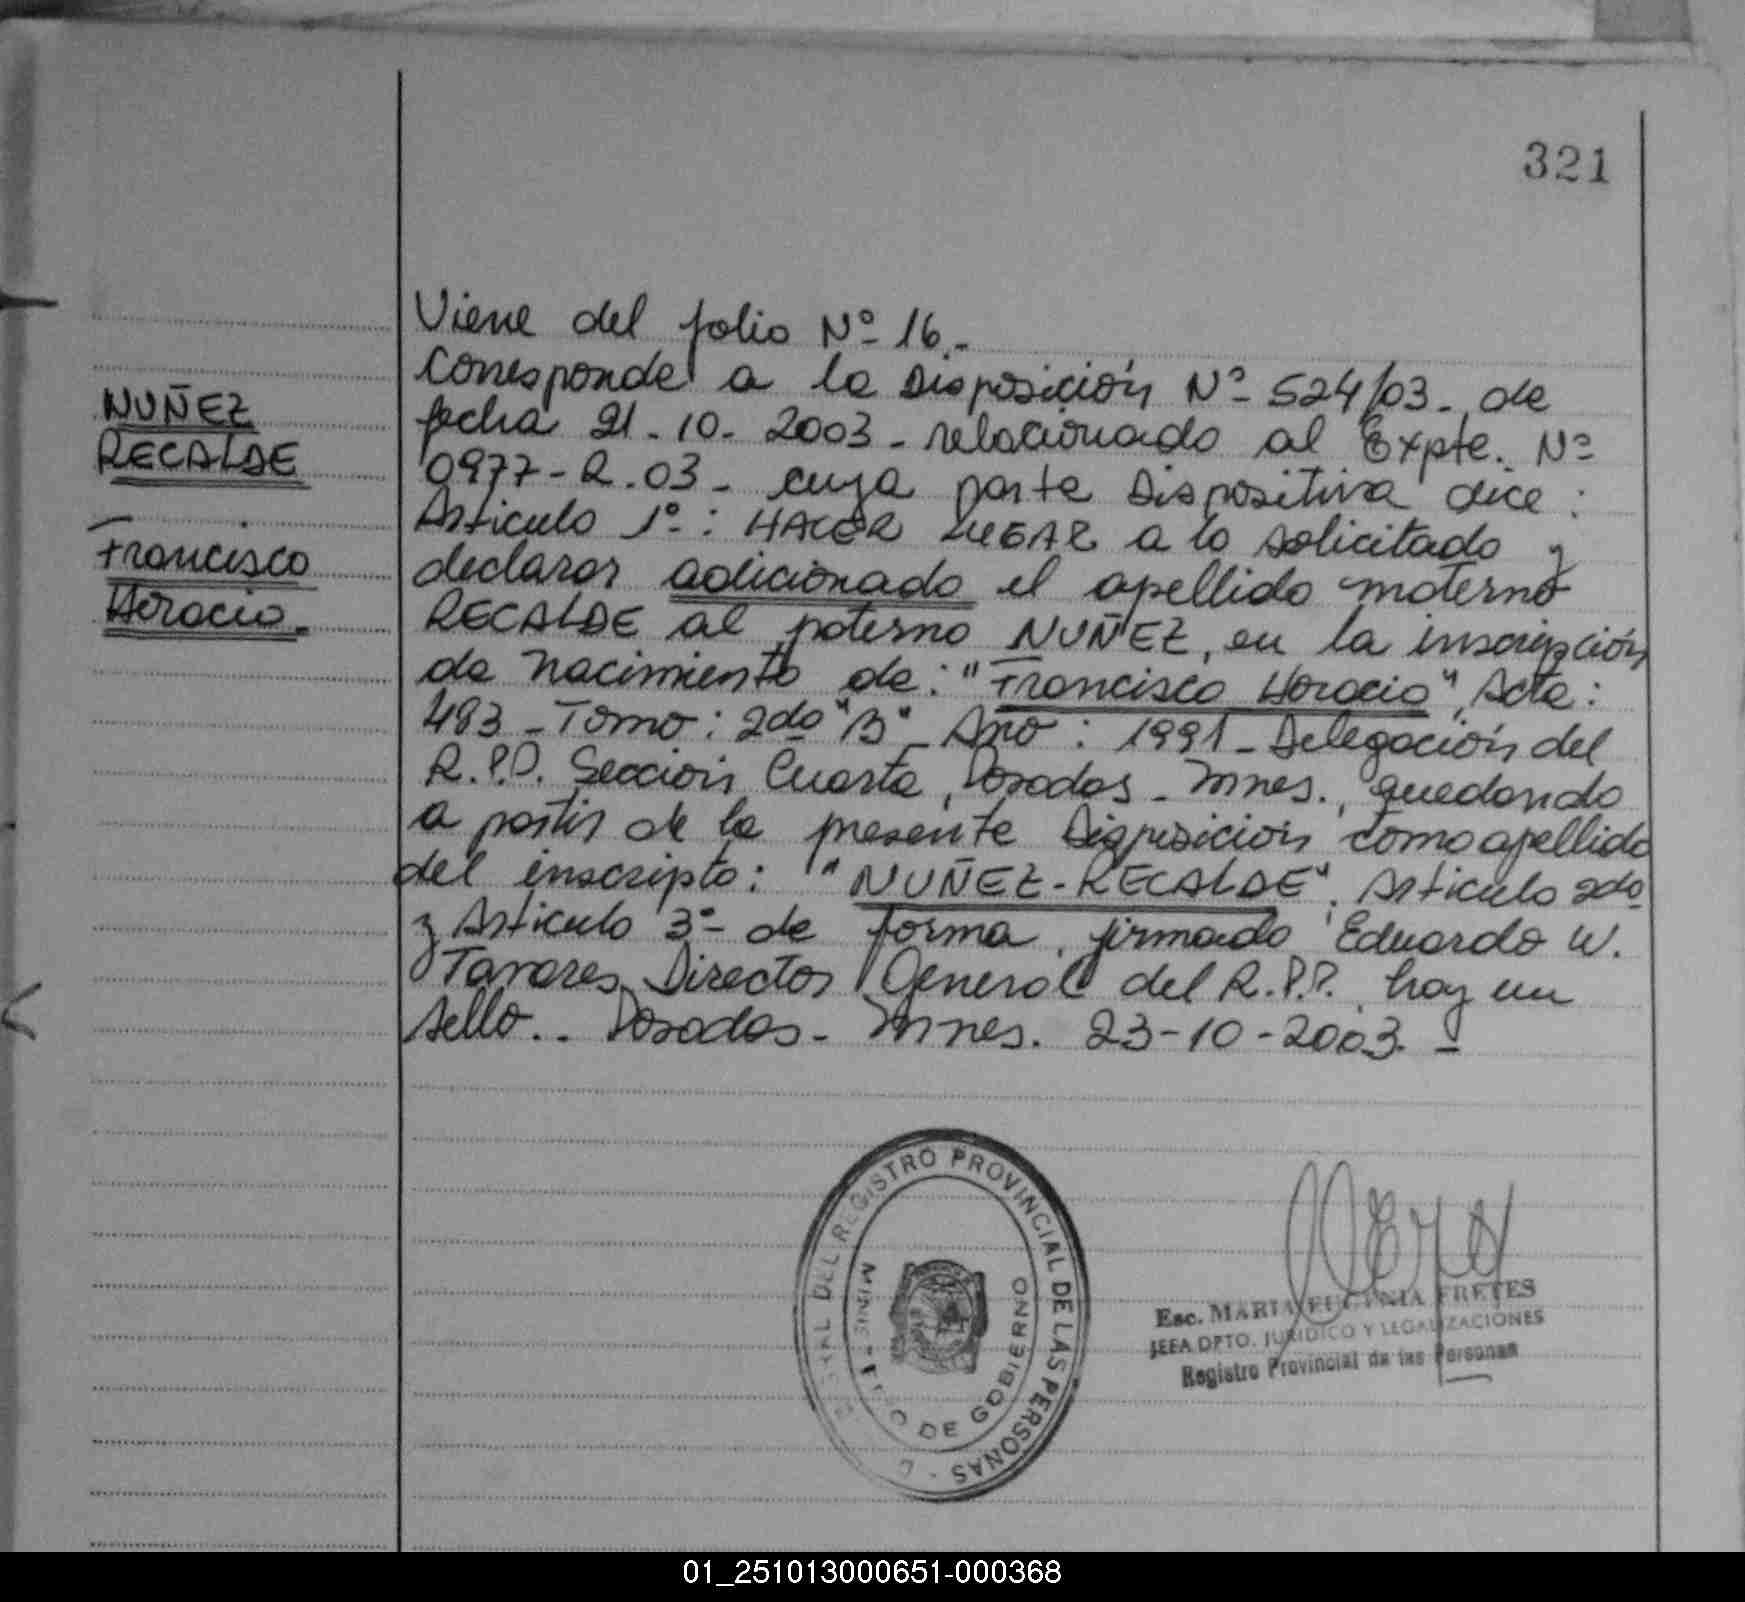 321
NUÑEZ
RECALDE
Francisco
Horacio.
Viene del folio Nº 16.-
Corresponde a la Disposición Nº 524/03-, de
fecha 21-10-2003- relacionado al Expte. Nº
0977-R.03- cuya parte Dispositiva dice:
Artículo 1º: HACER LUGAR a lo solicitado y
declarar adicionado el apellido materno
RECALDE al paterno NUÑEZ, en la inscripción
de nacimiento de: "Francisco Horacio", Acta:
483-Tomo: 2do "B"- Año: 1991-Delegación del
R.P.P. Sección Cuarta, Posadas- Mnes., quedando
a partir de la presente Disposición como apellido
del inscripto: "NUÑEZ-RECALDE". Artículo 2do
y Artículo 3º- de forma, firmado Eduardo W.
Tavares Director General del R.P.P. hay un
sello.. Posadas- Mnes. 23-10-2003.-
DEL REGISTRO PROVINCIAL DE LAS PERSONAS -
DE GOBIERNO
Esc. MARIA EUGENIA FRETES
JEFA DPTO. JURIDICO Y LEGALIZACIONES
Registro Provincial de las Personas
01_251013000651-000368